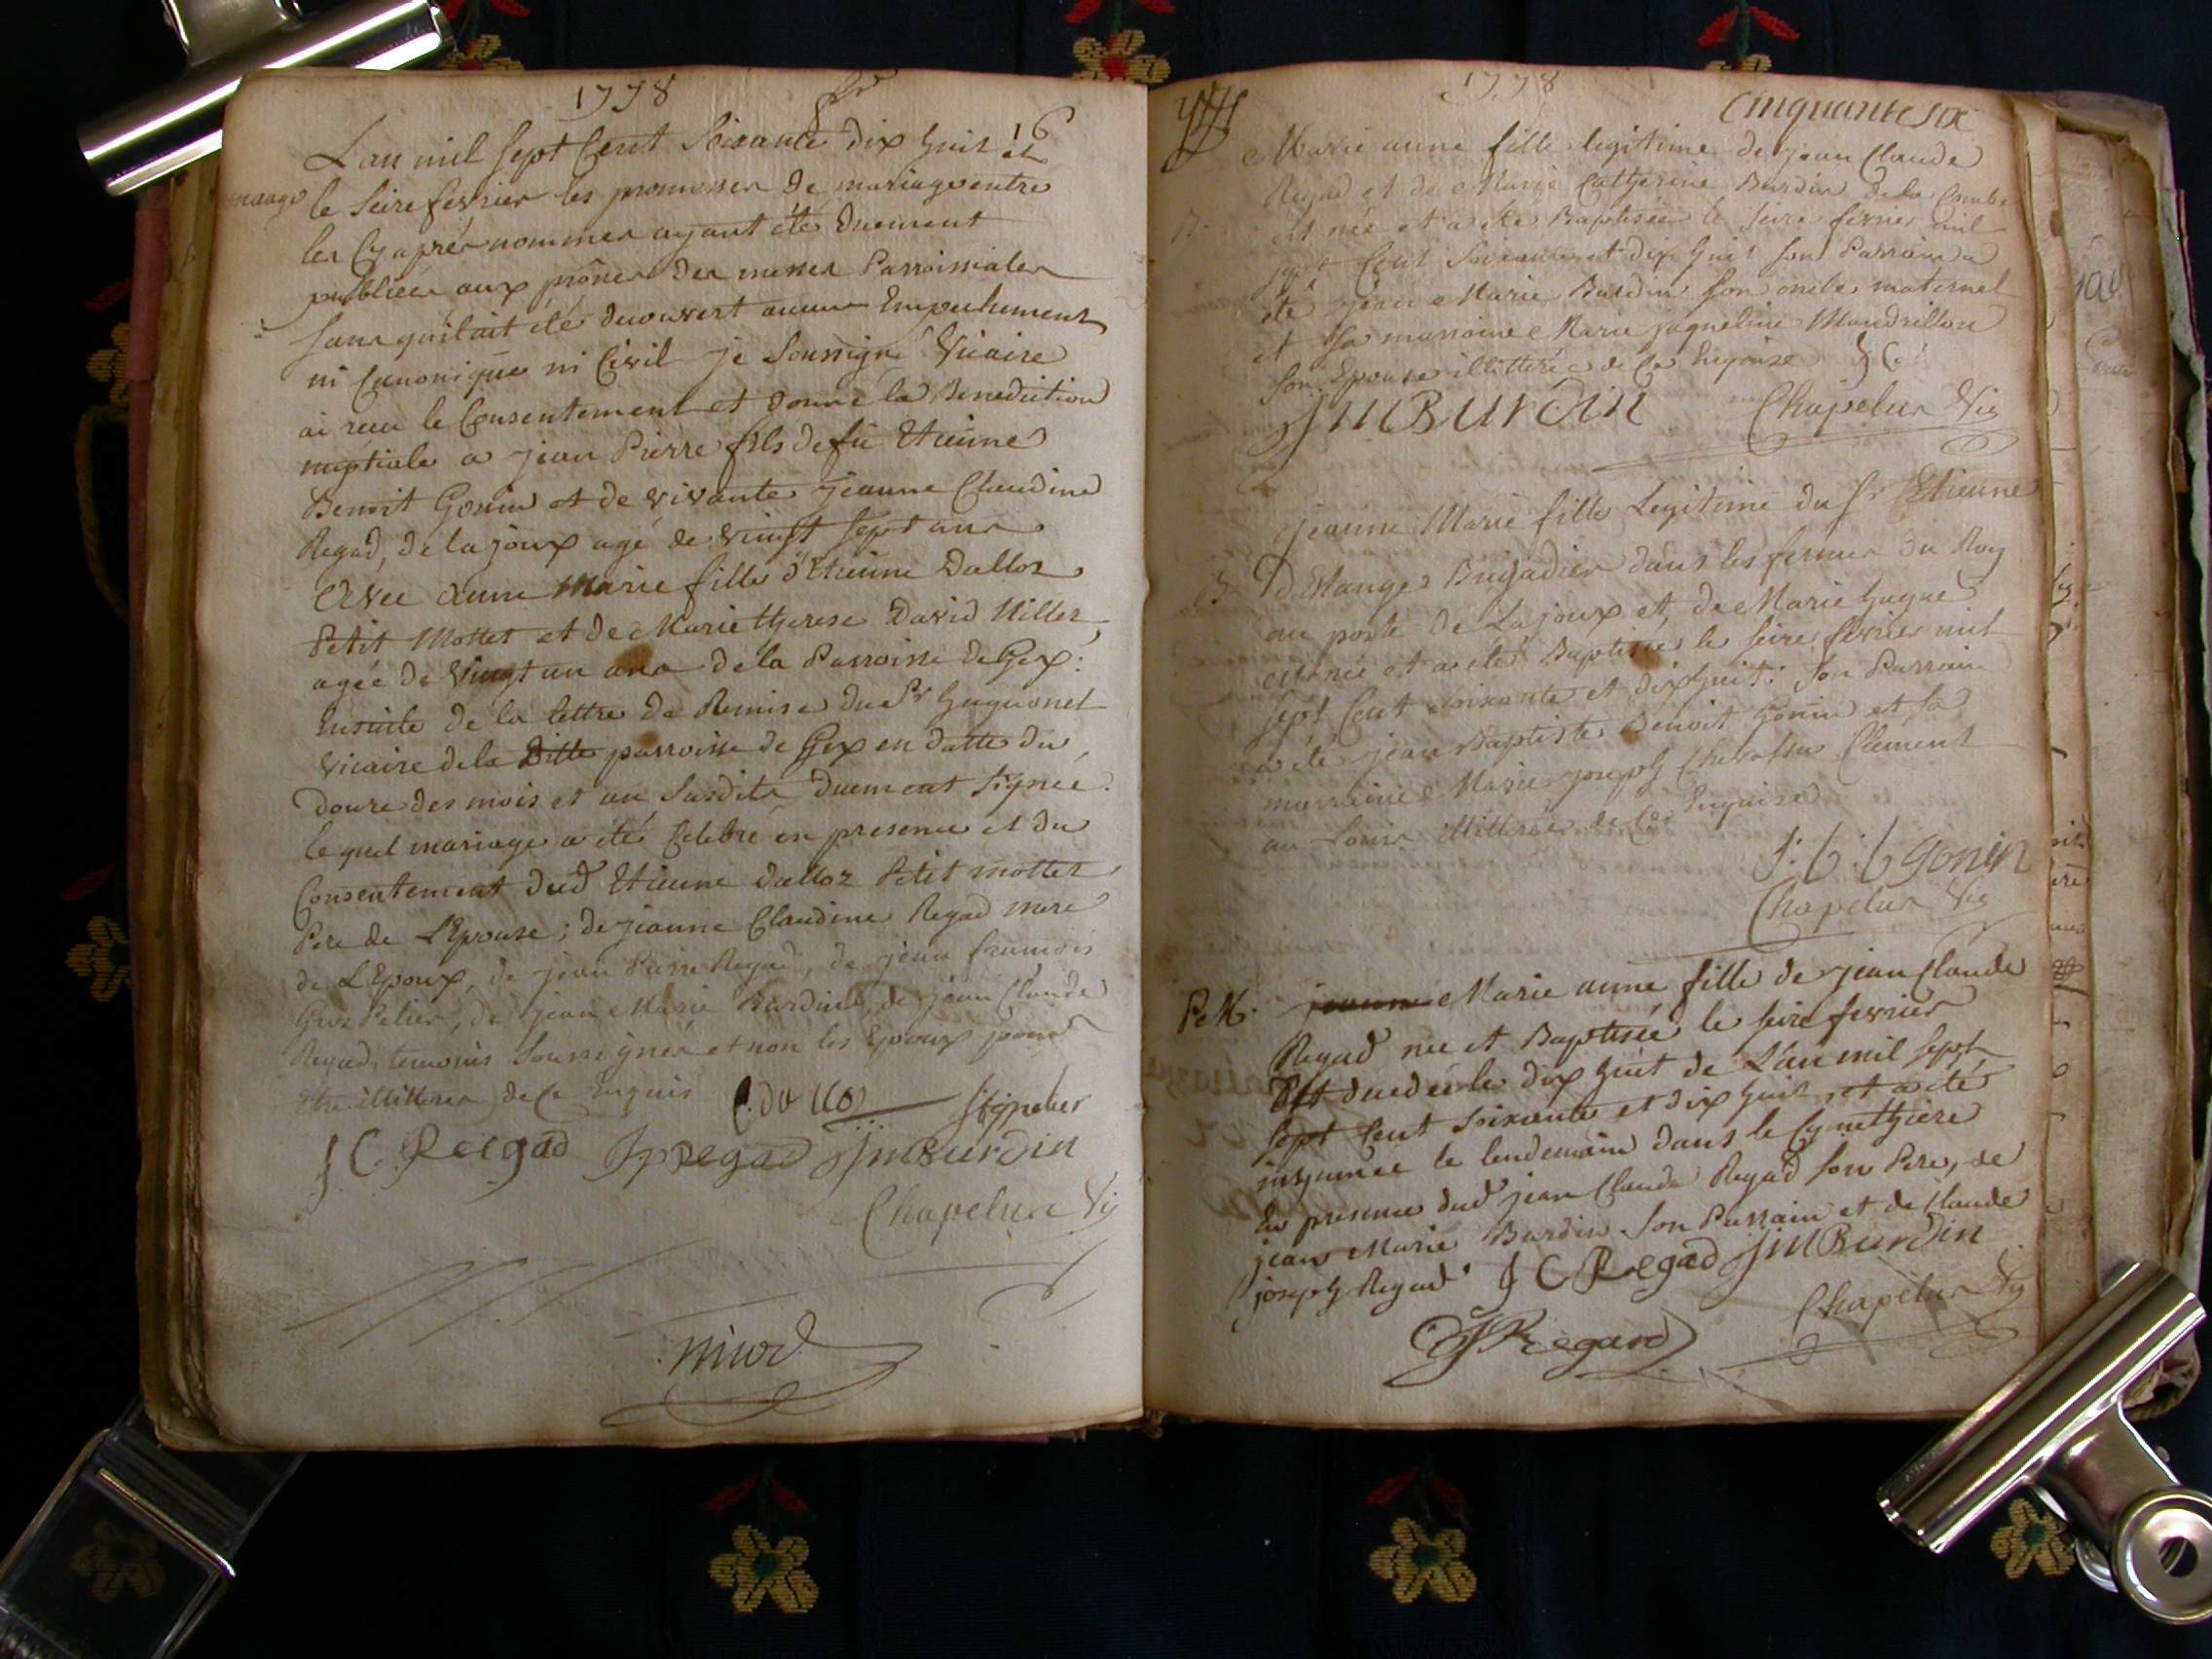 1778
16
L'an mil sept Cent Soixante dix huit et
mariage
le seize fevrier les promesses de mariage entre
les Cy après nommes ayant été Duement
publiées aux prônes des messes Parroissiales
sans quil ait été decouvert aucun Empechement
ni Canonique ni Civil je Soussigné Vicaire
ai recu le Consentement et donné la Benediction
nuptiale a jean Pierre fils de fû Etienne
Benoit Gonin et de vivante jeanne Claudine
Regad, de lajoux agé de vingt sept ans
Avec anne Marie fille d'Etienne Dalloz
Petit Mottet et de Marie therese David Millet,
agée de Vingt un ans de la Parroisse de Gex:
Ensuite de la lettre de Remise du Sr Huguonet
Vicaire de la Ditte parroisse de Gex en datte du
Douze des mois et an susdits Duement signée.
lequel mariage a été Celebré en presence et du
Consentement dud Etienne dalloz Petit mottet,
Pere de L'Epouse; de jeanne Claudine Regad mere
de L'Epoux, de jean Pierre Regad, de jean francois
Gros Pelier, de jean Marie Burdin, de jean Claude
Regad, temoins Soussignés et non les Epoux pour
etre illitteres de Ce Enquis
E. da lloz
J C Regad Jp Regad JmBurdin
Chapelus Vic
1778
Cinquante six
Marie anne fille legitime de jean Claude
Regad et de Marie Catherine Burdin de la Combe
B.
est née et a été Baptisée le seize fevrier mil
sept Cent Soixante et dix huit son Parrain a
été jean Marie Burdin son oncle maternel
et sa marraine Marie jaqueline Mandrillon
son Epouse illitterée de Ce Enquise
JMBurdin
Chapelus Vic
jeanne Marie fille Legitime du Sr Etienne
B.
D'Etanges Brigadier dans les fermes du Roy
au poste de Lajoux et, de Marie Hugue
est née et a été Baptisée le seize fevrier mil
sept Cent soixante et dix huit: Son Parrain
a été jean Baptiste Benoit Gonin et sa
marraine Marie joseph Chevassu Clement
au Louis illitterée de Ce Enquise
j: b: b gonin
Chapelus Vic
jeanne Marie anne fille de jean Claude
Regad née et Baptisée le seize fevrier
Est decedée le dix huit de L'an mil sept
sept Cent Soixante et dix huit, et a été
inhumée le lendemain dans le Cymethiere
En presence dud jean Claude Regad son Pere, de
jean Marie Burdin son Parrain et de Claude
joseph Regad
J C Regad JMBurdin
Chapelus Vic
CJ Regard